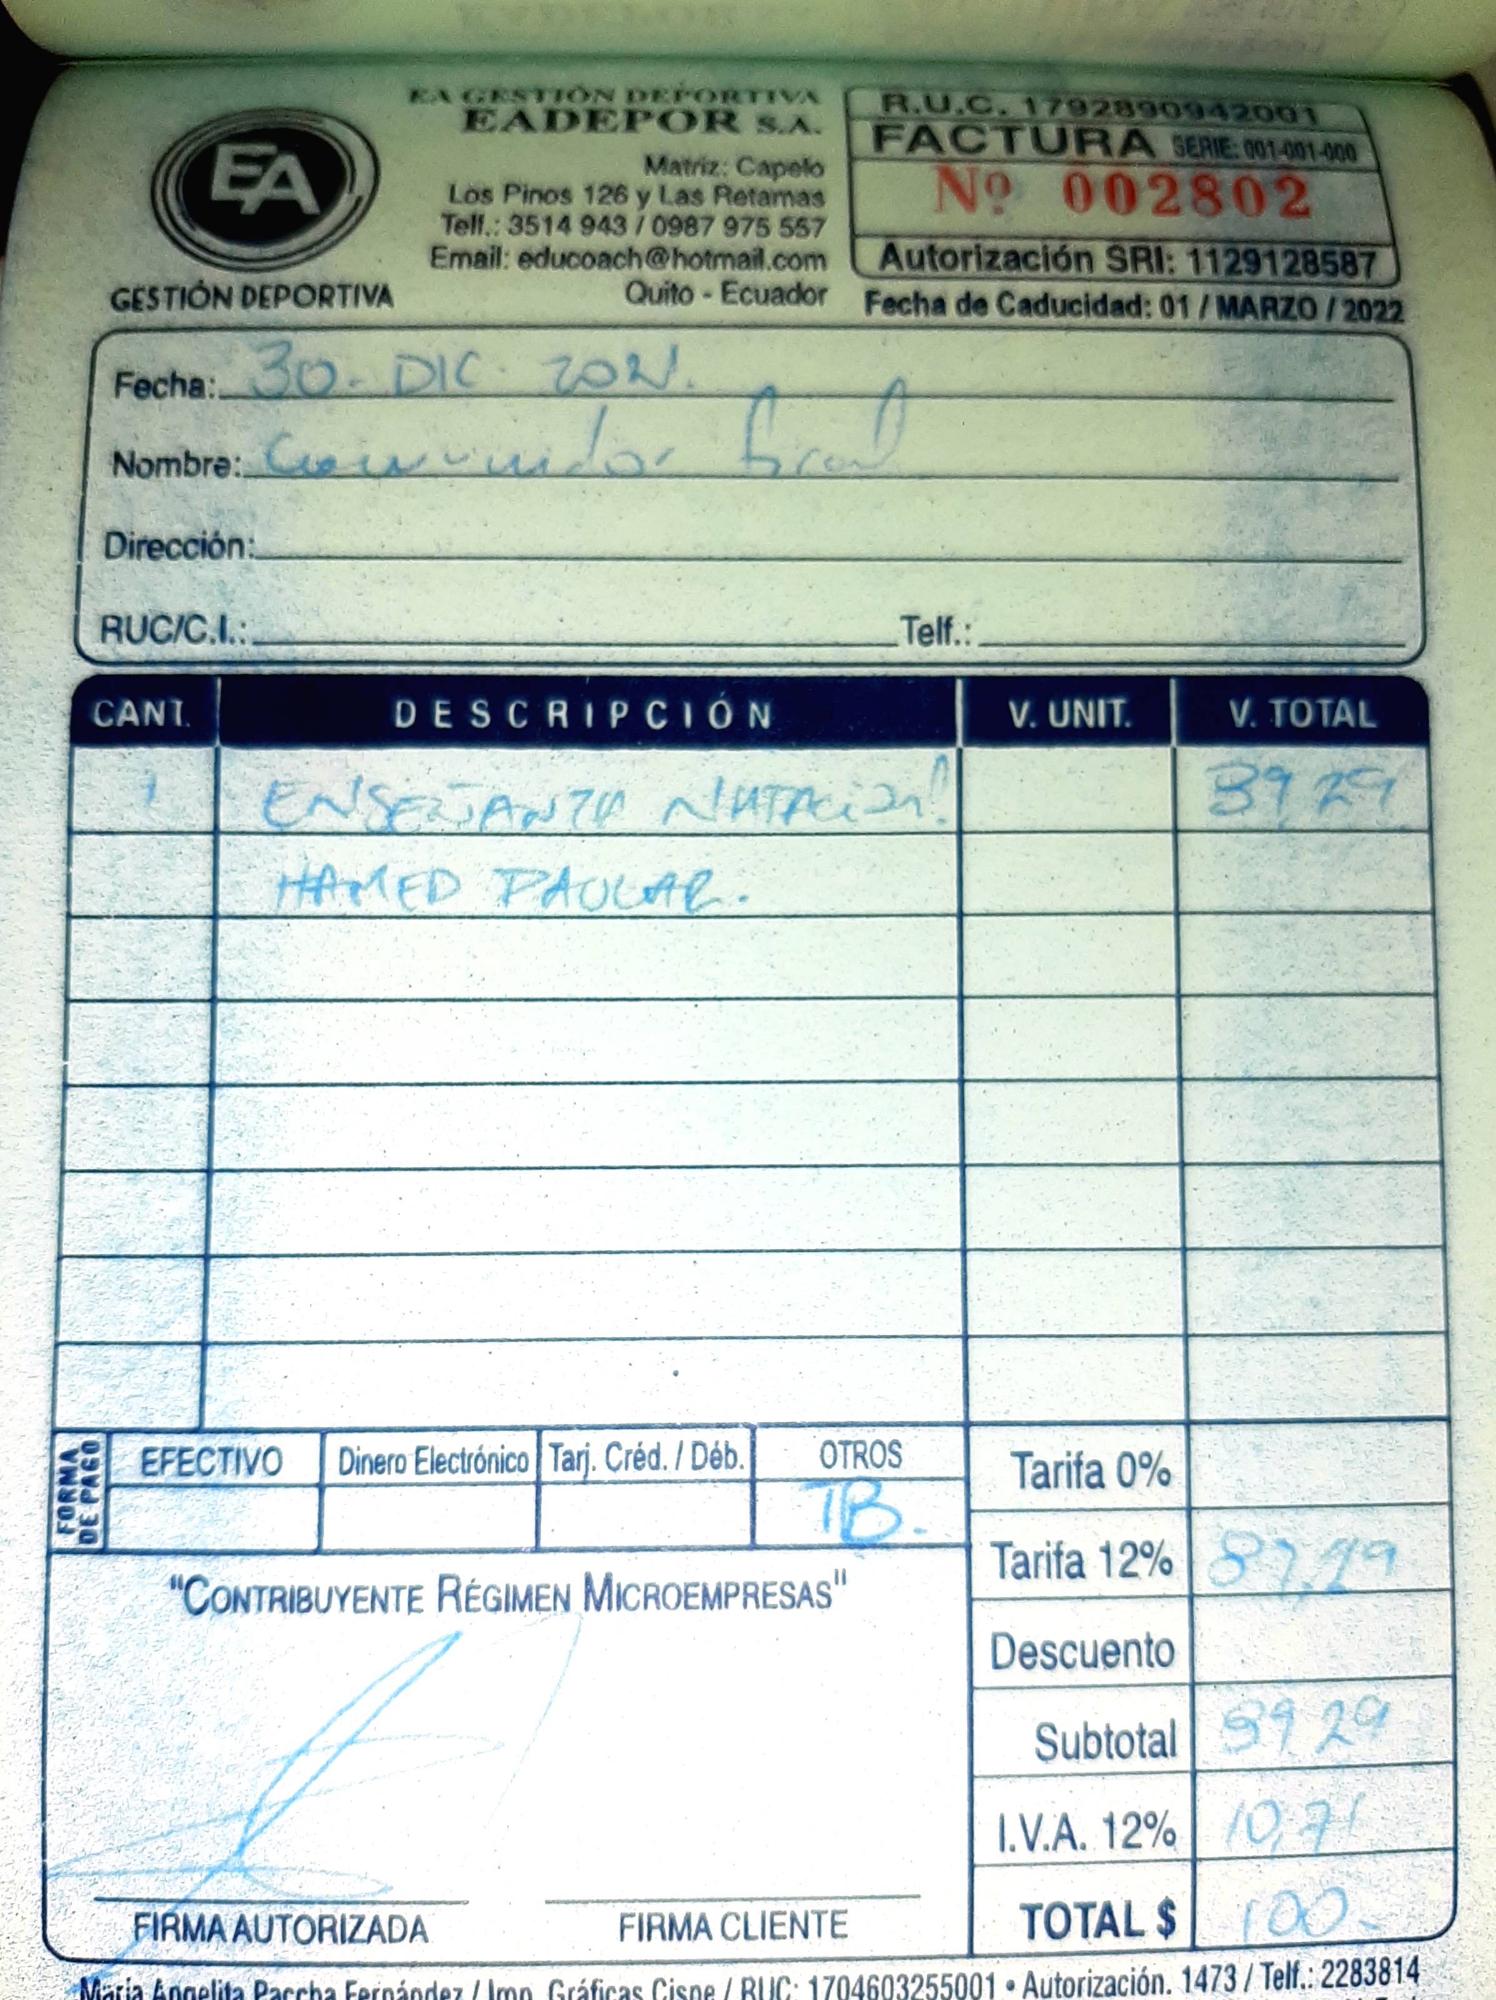 EA GESTIÓN DEPORTIVA
EADEPOR S.A.
EA
GESTIÓN DEPORTIVA
Matriz: Capelo
Los Pinos 126 y Las Retamas
Telf.: 3514 943 / 0987 975 557
Email: educoach@hotmail.com
Quito - Ecuador
R.U.C. 1792890942001
FACTURA SERIE: 001-001-000
Nº 002802
Autorización SRI: 1129128587
Fecha de Caducidad: 01 / MARZO / 2022
Fecha: 30. DIC. 2021.
Nombre: Consumidor final
Dirección:
RUC/C.I.: Telf.:
CANT. DESCRIPCIÓN V. UNIT. V. TOTAL
1 ENSEÑANZA NATACIÓN 89,29
HAMED
FORMA DE PAGO
EFECTIVO Dinero Electrónico Tarj. Créd. / Déb. OTROS
TB.
Tarifa 0%
Tarifa 12% 89,29
Descuento
Subtotal 89,29
I.V.A. 12% 10,71
TOTAL $ 100.-
"CONTRIBUYENTE RÉGIMEN MICROEMPRESAS"
FIRMA AUTORIZADA FIRMA CLIENTE
María Angelita Paccha Fernández / Imp. Gráficas Cisne / RUC: 1704603255001 • Autorización. 1473 / Telf.: 2283814